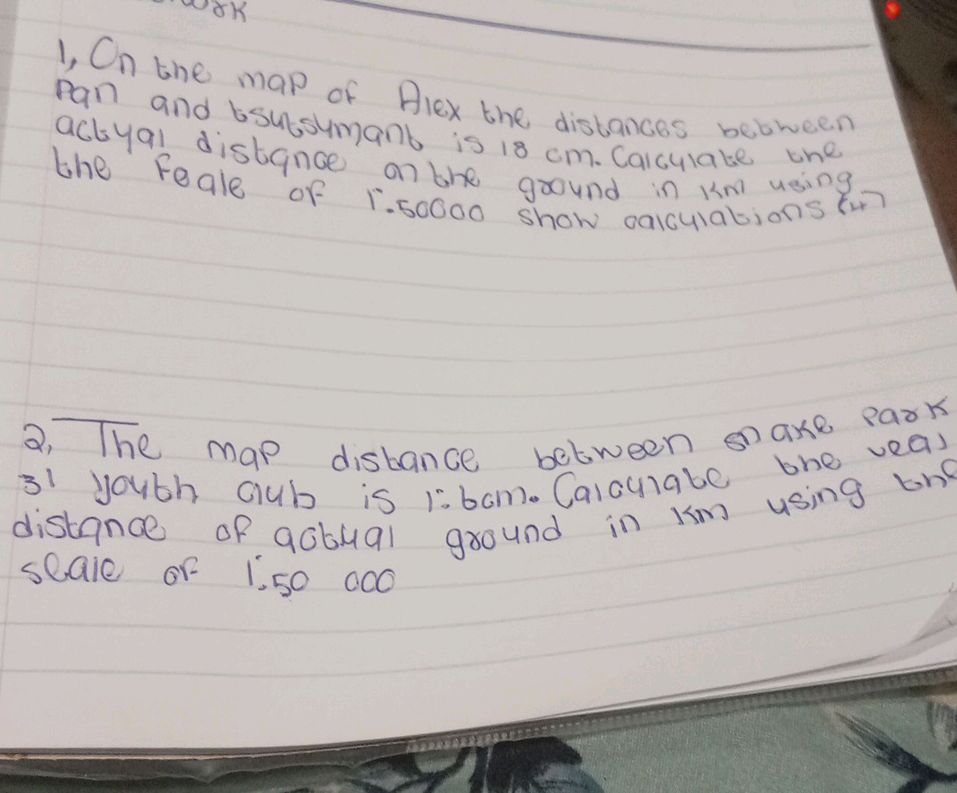 work
1, On the map of Alex the distances between
Pan and tsutsumant is 18 cm. Calculate the
actual distance on the ground in Km using
the Feale of 1:50000 show calculations (4)
2, The map distance between snake Park
31 youth club is 1:6cm. Calculate the real
distance of actual ground in Km using the
scale of 1:50 000